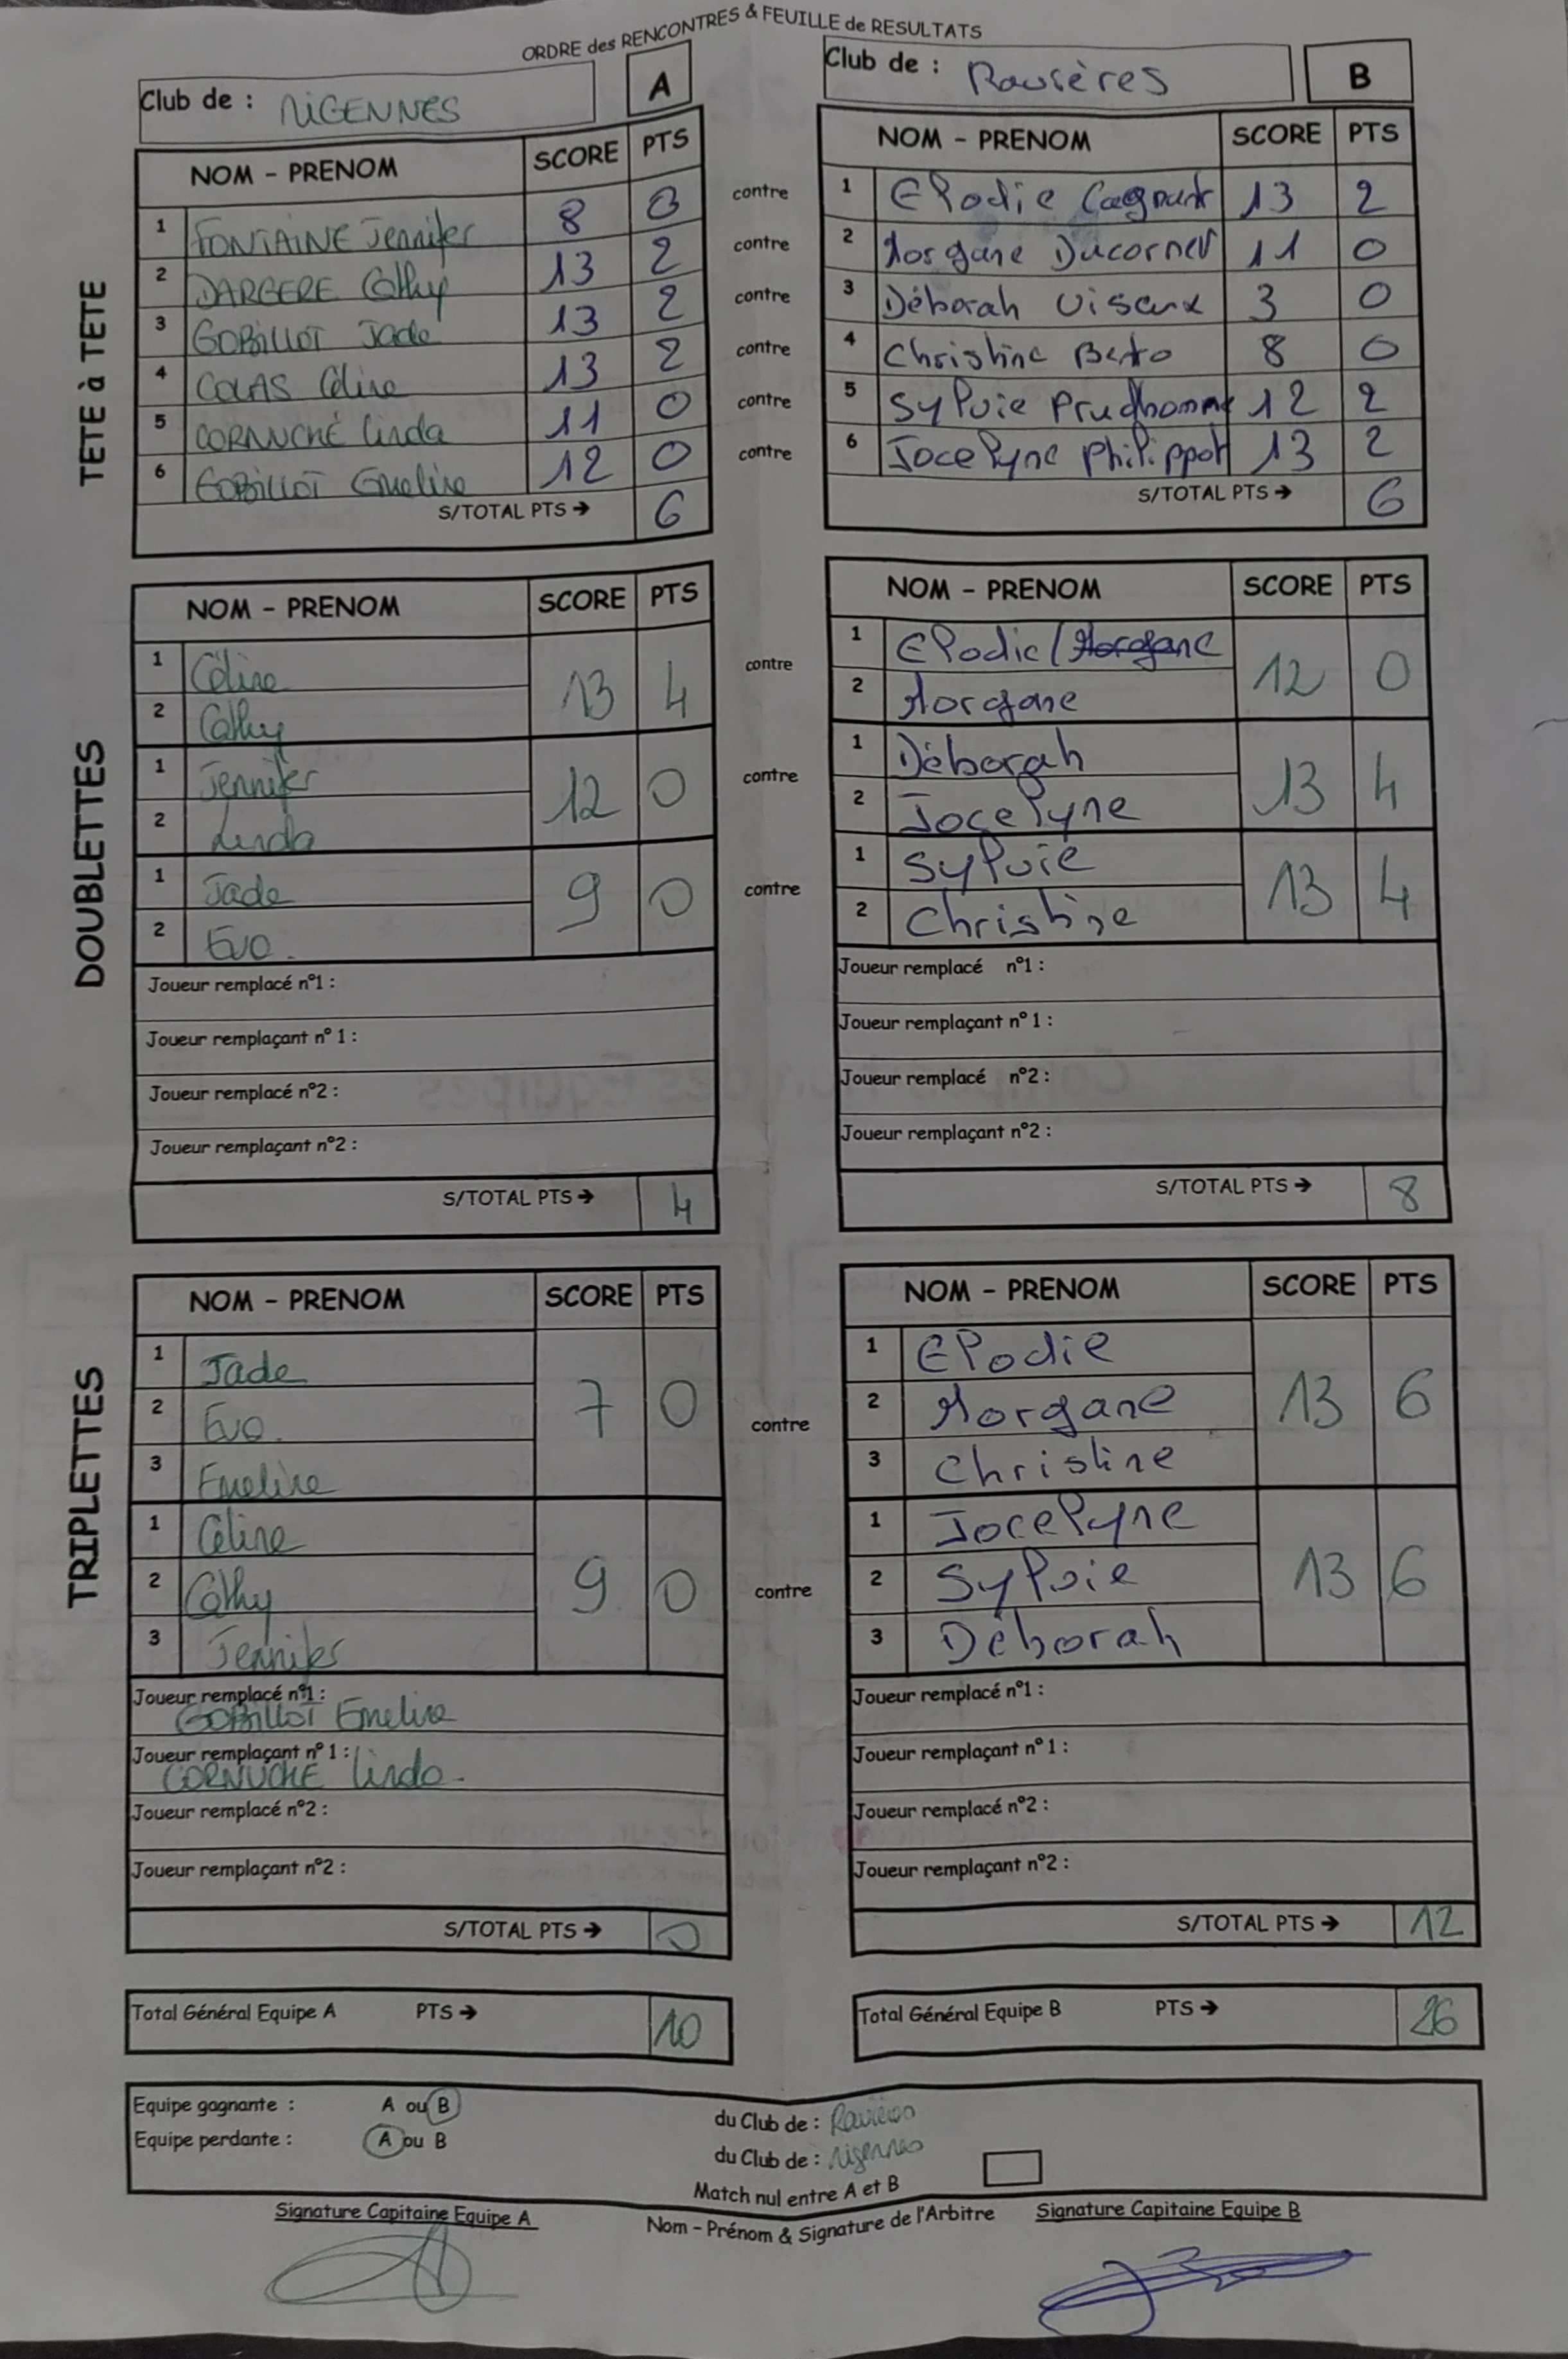 ORDRE des RENCONTRES & FEUILLE de RESULTATS
Club de : MIGENNES A
Club de : Ravières B
TETE à TETE
NOM - PRENOM SCORE PTS
1 FONTAINE Jennifer 8 0
2 DARGERE Cathy 13 2
3 GOBILLOT Jade 13 2
4 COLAS Céline 13 2
5 CORNUCHÉ Linda 11 0
6 GOBILLOT Emeline 12 0
S/TOTAL PTS → 6
contre
contre
contre
contre
contre
contre
NOM - PRENOM SCORE PTS
1 Elodie 13 2
2 Morgane Ducornet 11 0
3 Déborah Viseux 3 0
4 Christine 8 0
5 Sylvie Prudhomme 12 2
6 Jocelyne Philippot 13 2
S/TOTAL PTS → 6
DOUBLETTES
NOM - PRENOM SCORE PTS
1 Céline 13 4
2 Cathy
1 Jennifer 12 0
2 Linda
1 Jade 9 0
2 Eva.
Joueur remplacé n°1 :
Joueur remplaçant n° 1 :
Joueur remplacé n°2 :
Joueur remplaçant n°2 :
S/TOTAL PTS → 4
contre
contre
contre
NOM - PRENOM SCORE PTS
1 Elodie / Morgane 12 0
2 Morgane
1 Déborah 13 4
2 Jocelyne
1 Sylvie 13 4
2 Christine
Joueur remplacé n°1 :
Joueur remplaçant n° 1 :
Joueur remplacé n°2 :
Joueur remplaçant n°2 :
S/TOTAL PTS → 8
TRIPLETTES
NOM - PRENOM SCORE PTS
1 Jade 7 0
2 Eva.
3 Emeline
1 Céline 9 0
2 Cathy
3 Jennifer
Joueur remplacé n°1 :
GOBILLOT Emeline
Joueur remplaçant n° 1 :
CORNUCHÉ Linda.
Joueur remplacé n°2 :
Joueur remplaçant n°2 :
S/TOTAL PTS → 0
contre
contre
NOM - PRENOM SCORE PTS
1 Elodie 13 6
2 Morgane
3 Christine
1 Jocelyne 13 6
2 Sylvie
3 Déborah
Joueur remplacé n°1 :
Joueur remplaçant n° 1 :
Joueur remplacé n°2 :
Joueur remplaçant n°2 :
S/TOTAL PTS → 12
Total Général Equipe A PTS → 10
Total Général Equipe B PTS → 26
Equipe gagnante : A ou B du Club de : Ravières
Equipe perdante : A ou B du Club de : Migennes
Match nul entre A et B
Signature Capitaine Equipe A
Nom - Prénom & Signature de l'Arbitre
Signature Capitaine Equipe B